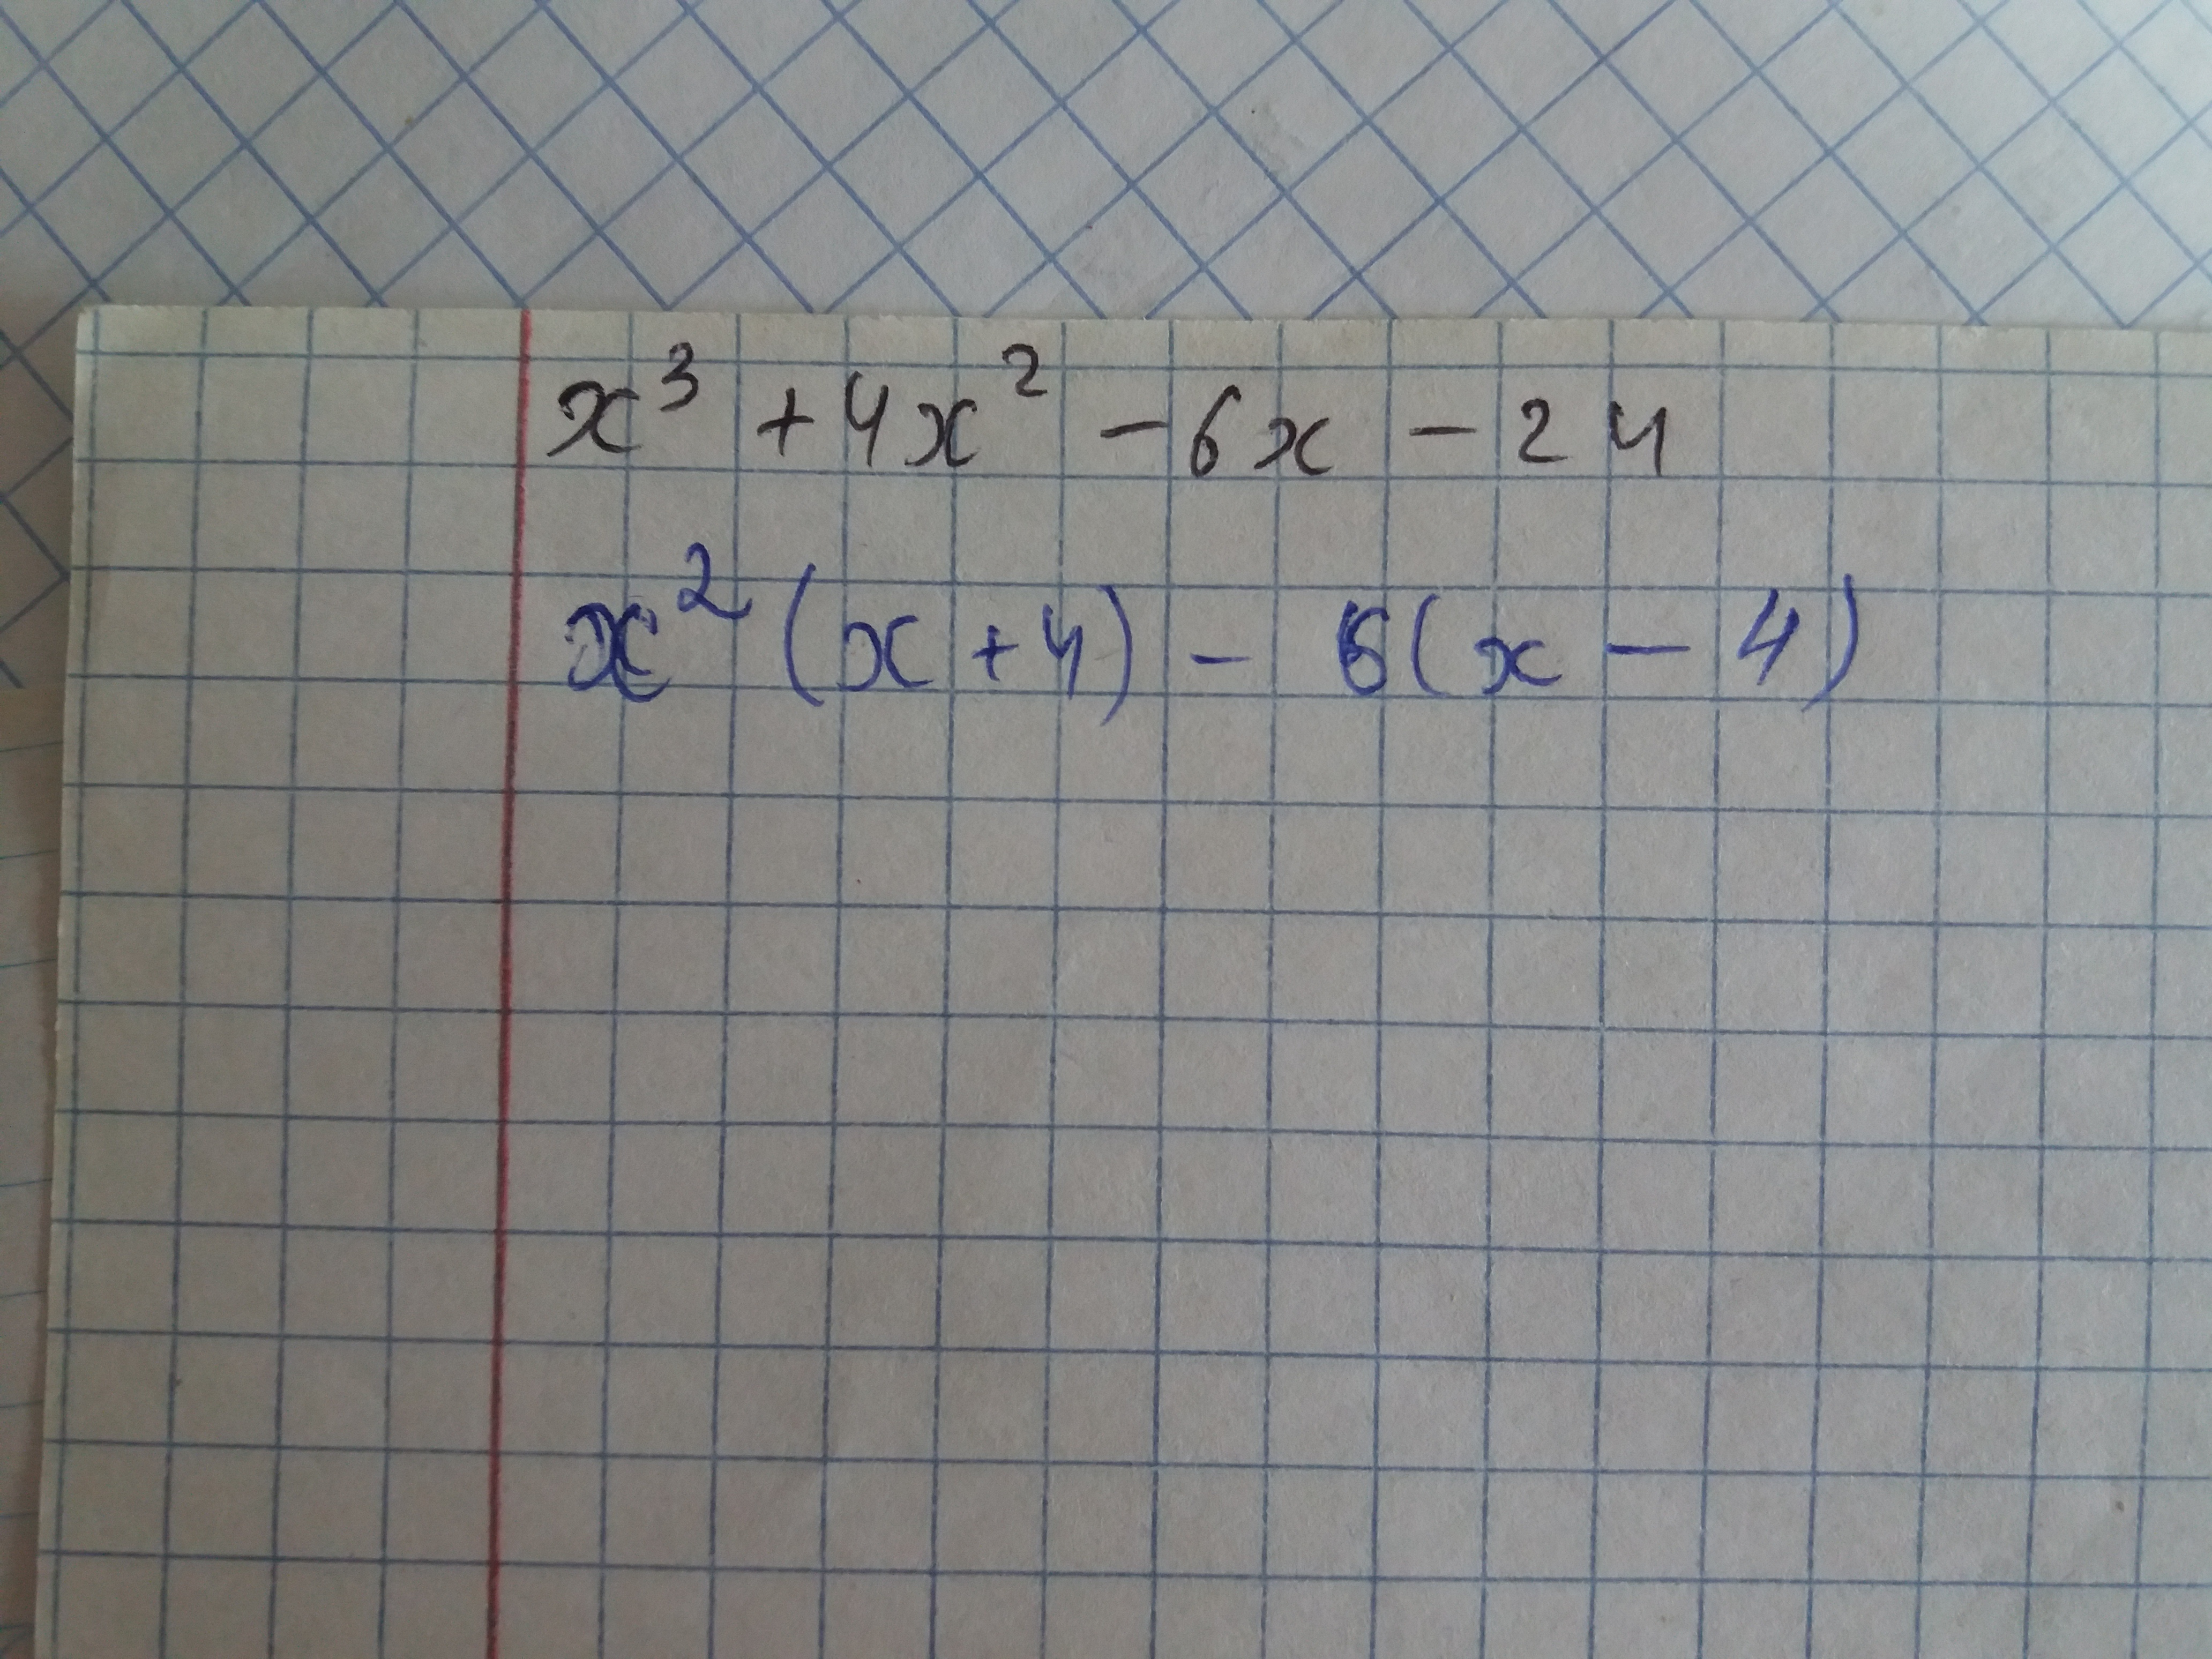 x³ + 4x² - 6x - 24
x² (x + 4) - 6(x - 4)